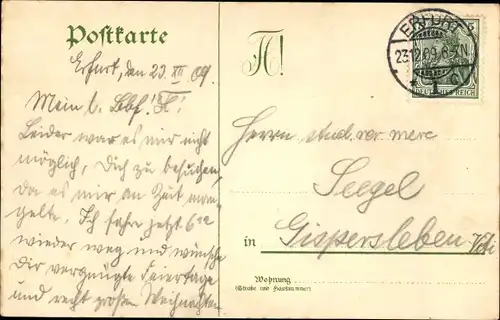 Postkarte
Erfurt, den 23. XII 09.
Mein l. Lbf.! A!
Leider war es mir nicht
möglich, Dich zu besuchen,
da es mir an Zeit man-
gelte. Ich fahre jetzt 6
wieder weg und wünsche
Dir vergnügte Feiertage
und recht großen Weihnachten
A!
ERFURT
23.12.09. 6-7N.
1 c
DEUTSCHES REICH
Herrn stud. rer. merc
Seegel
in Gispersleben
Wohnung
(Straße und Hausnummer)